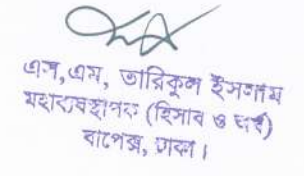 এস, এম, তারিকুল ইসলাম
মহাব্যবস্থাপক (হিসাব ও অর্থ)
বাপেক্স, ঢাকা।